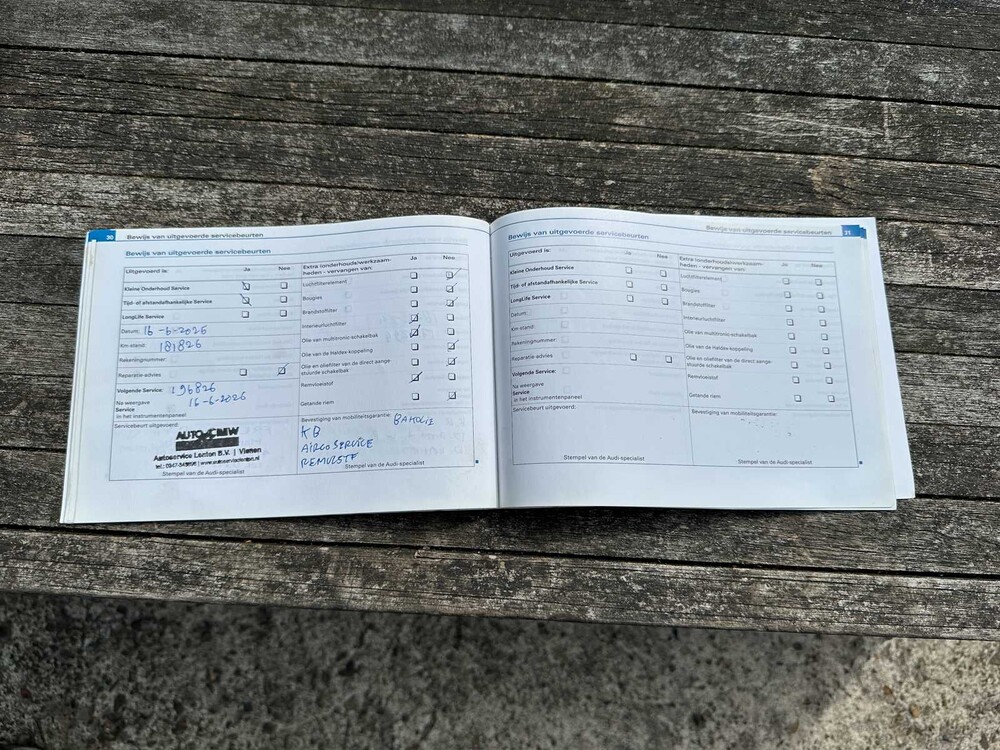 30 Bewijs van uitgevoerde servicebeurten
Bewijs van uitgevoerde servicebeurten
Uitgevoerd is: Ja Nee
Kleine Onderhoud Service
Tijd- of afstandafhankelijke Service
LongLife Service
Datum: 16-6-2025
Km-stand: 181826
Rekeningnummer:
Reparatie-advies
Volgende Service: 196826
Na weergave 16-6-2026
Service
in het instrumentenpaneel
Servicebeurt uitgevoerd:
AUTO CREW
Autoservice Lanton B.V. | Vianen
Stempel van de Audi-specialist
Extra (onderhouds)werkzaam-
heden - vervangen van: Ja Nee
Luchtfilterelement
Bougies
Brandstoffilter
Interieurluchtfilter
Olie van multitronic-schakelbak
Olie van de Haldex-koppeling
Olie en oliefilter van de direct aange-
stuurde schakelbak
Remvloeistof
Getande riem
Bevestiging van mobiliteitsgarantie:
KB
AIRCO SERVICE
Stempel van de Audi-specialist
Bewijs van uitgevoerde servicebeurten 31
Bewijs van uitgevoerde servicebeurten
Uitgevoerd is: Ja Nee
Kleine Onderhoud Service
Tijd- of afstandafhankelijke Service
LongLife Service
Datum:
Km-stand:
Rekeningnummer:
Reparatie-advies
Volgende Service:
Na weergave
Service
in het instrumentenpaneel
Servicebeurt uitgevoerd:
Stempel van de Audi-specialist
Extra (onderhouds)werkzaam-
heden - vervangen van: Ja Nee
Luchtfilterelement
Bougies
Brandstoffilter
Interieurluchtfilter
Olie van multitronic-schakelbak
Olie van de Haldex-koppeling
Olie en oliefilter van de direct aange-
stuurde schakelbak
Remvloeistof
Getande riem
Bevestiging van mobiliteitsgarantie:
Stempel van de Audi-specialist